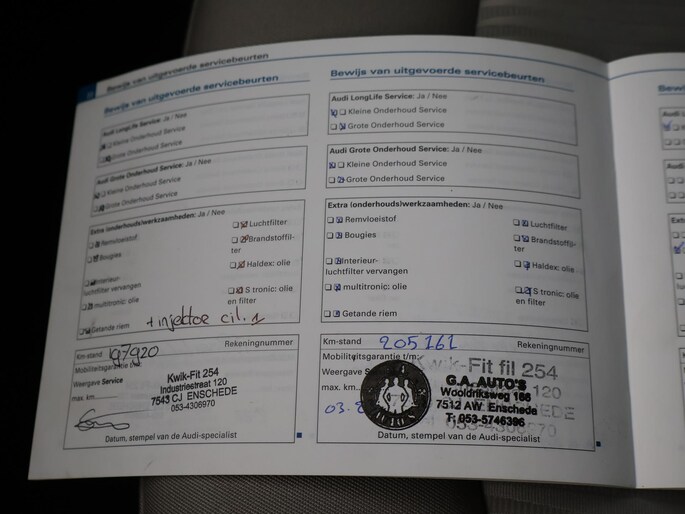 Bewijs van uitgevoerde servicebeurten
Bewijs van uitgevoerde servicebeurten
Audi LongLife Service: Ja / Nee
Kleine Onderhoud Service
Grote Onderhoud Service
Audi Grote Onderhoud Service: Ja / Nee
Kleine Onderhoud Service
Grote Onderhoud Service
Extra (onderhouds)werkzaamheden: Ja / Nee
Remvloeistof
Bougies
Interieur-
luchtfilter vervangen
multitronic: olie
Getande riem
Luchtfilter
Brandstoffil-
ter
Haldex: olie
S tronic: olie
en filter
+ injektoe cil. 1
Km-stand 197920 Rekeningnummer
Mobiliteitsgarantie t/m:
Weergave Service
max. km
Kwik-Fit 254
Industriestraat 120
7543 CJ ENSCHEDE
053-4306970
Datum, stempel van de Audi-specialist
Bewijs van uitgevoerde servicebeurten
Audi LongLife Service: Ja / Nee
Kleine Onderhoud Service
Grote Onderhoud Service
Audi Grote Onderhoud Service: Ja / Nee
Kleine Onderhoud Service
Grote Onderhoud Service
Extra (onderhouds)werkzaamheden: Ja / Nee
Remvloeistof
Bougies
Interieur-
luchtfilter vervangen
multitronic: olie
Getande riem
Luchtfilter
Brandstoffil-
ter
Haldex: olie
S tronic: olie
en filter
Km-stand 205161 Rekeningnummer
Mobiliteitsgarantie t/m:
Weergave
max. km
03.
Kwik-Fit fil 254
120
ENSCHEDE
G.A. AUTO'S
Wooldriksweg 166
7512 AW Enschede
T: 053-5746396
Datum, stempel van de Audi-specialist